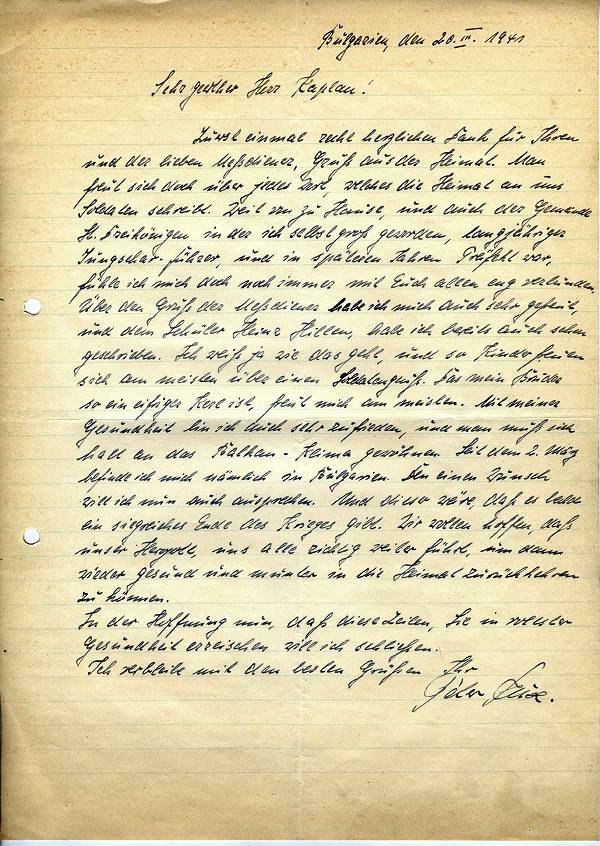 Bulgarien, den 20. III. 1941
Sehr geehrter Herr Kaplan!
Zuerst einmal recht herzlichen Dank für Ihren
und der lieben Meßdiener, Gruß aus der Heimat. Man
freut sich doch über jedes Wort, welches die Heimat an uns
Soldaten schreibt. Weit von zu Hause, und auch der Gemeinde
Hl. Dreikönigen in der ich selbst groß geworden, langjähriger
Jungschar-führer, und in späteren Jahren Präfekt war,
fühle ich mich doch noch immer mit Euch allen eng verbunden.
Über den Gruß der Meßdiener habe ich mich auch sehr gefreut,
und dem Schüler Heinz Hillen, habe ich bereits auch schon
geschrieben. Ich weiß ja wie das geht, und so Kinder freuen
sich am meisten über einen Soldatengruß. Das mein Bruder
so ein eifriger Kerl ist, freut mich am meisten. Mit meiner
Gesundheit bin ich auch sehr zufrieden, und man muß sich
halt an das Balkan-Klima gewöhnen. Seit dem 2. März
befinde ich mich nämlich in Bulgarien. Den einen Wunsch
will ich nun auch aussprechen. Und dieser wäre, daß es bald
ein siegreiches Ende des Krieges gibt. Wir wollen hoffen, daß
unser Herrgott, uns alle richtig weiter führt, um dann
wieder gesund und munter in die Heimat zurückkehren
zu können.
In der Hoffnung nun, daß diese Zeilen, Sie in
Gesundheit erreichen will ich schließen.
Ich verbleibe mit den besten Grüßen Ihr
Peter